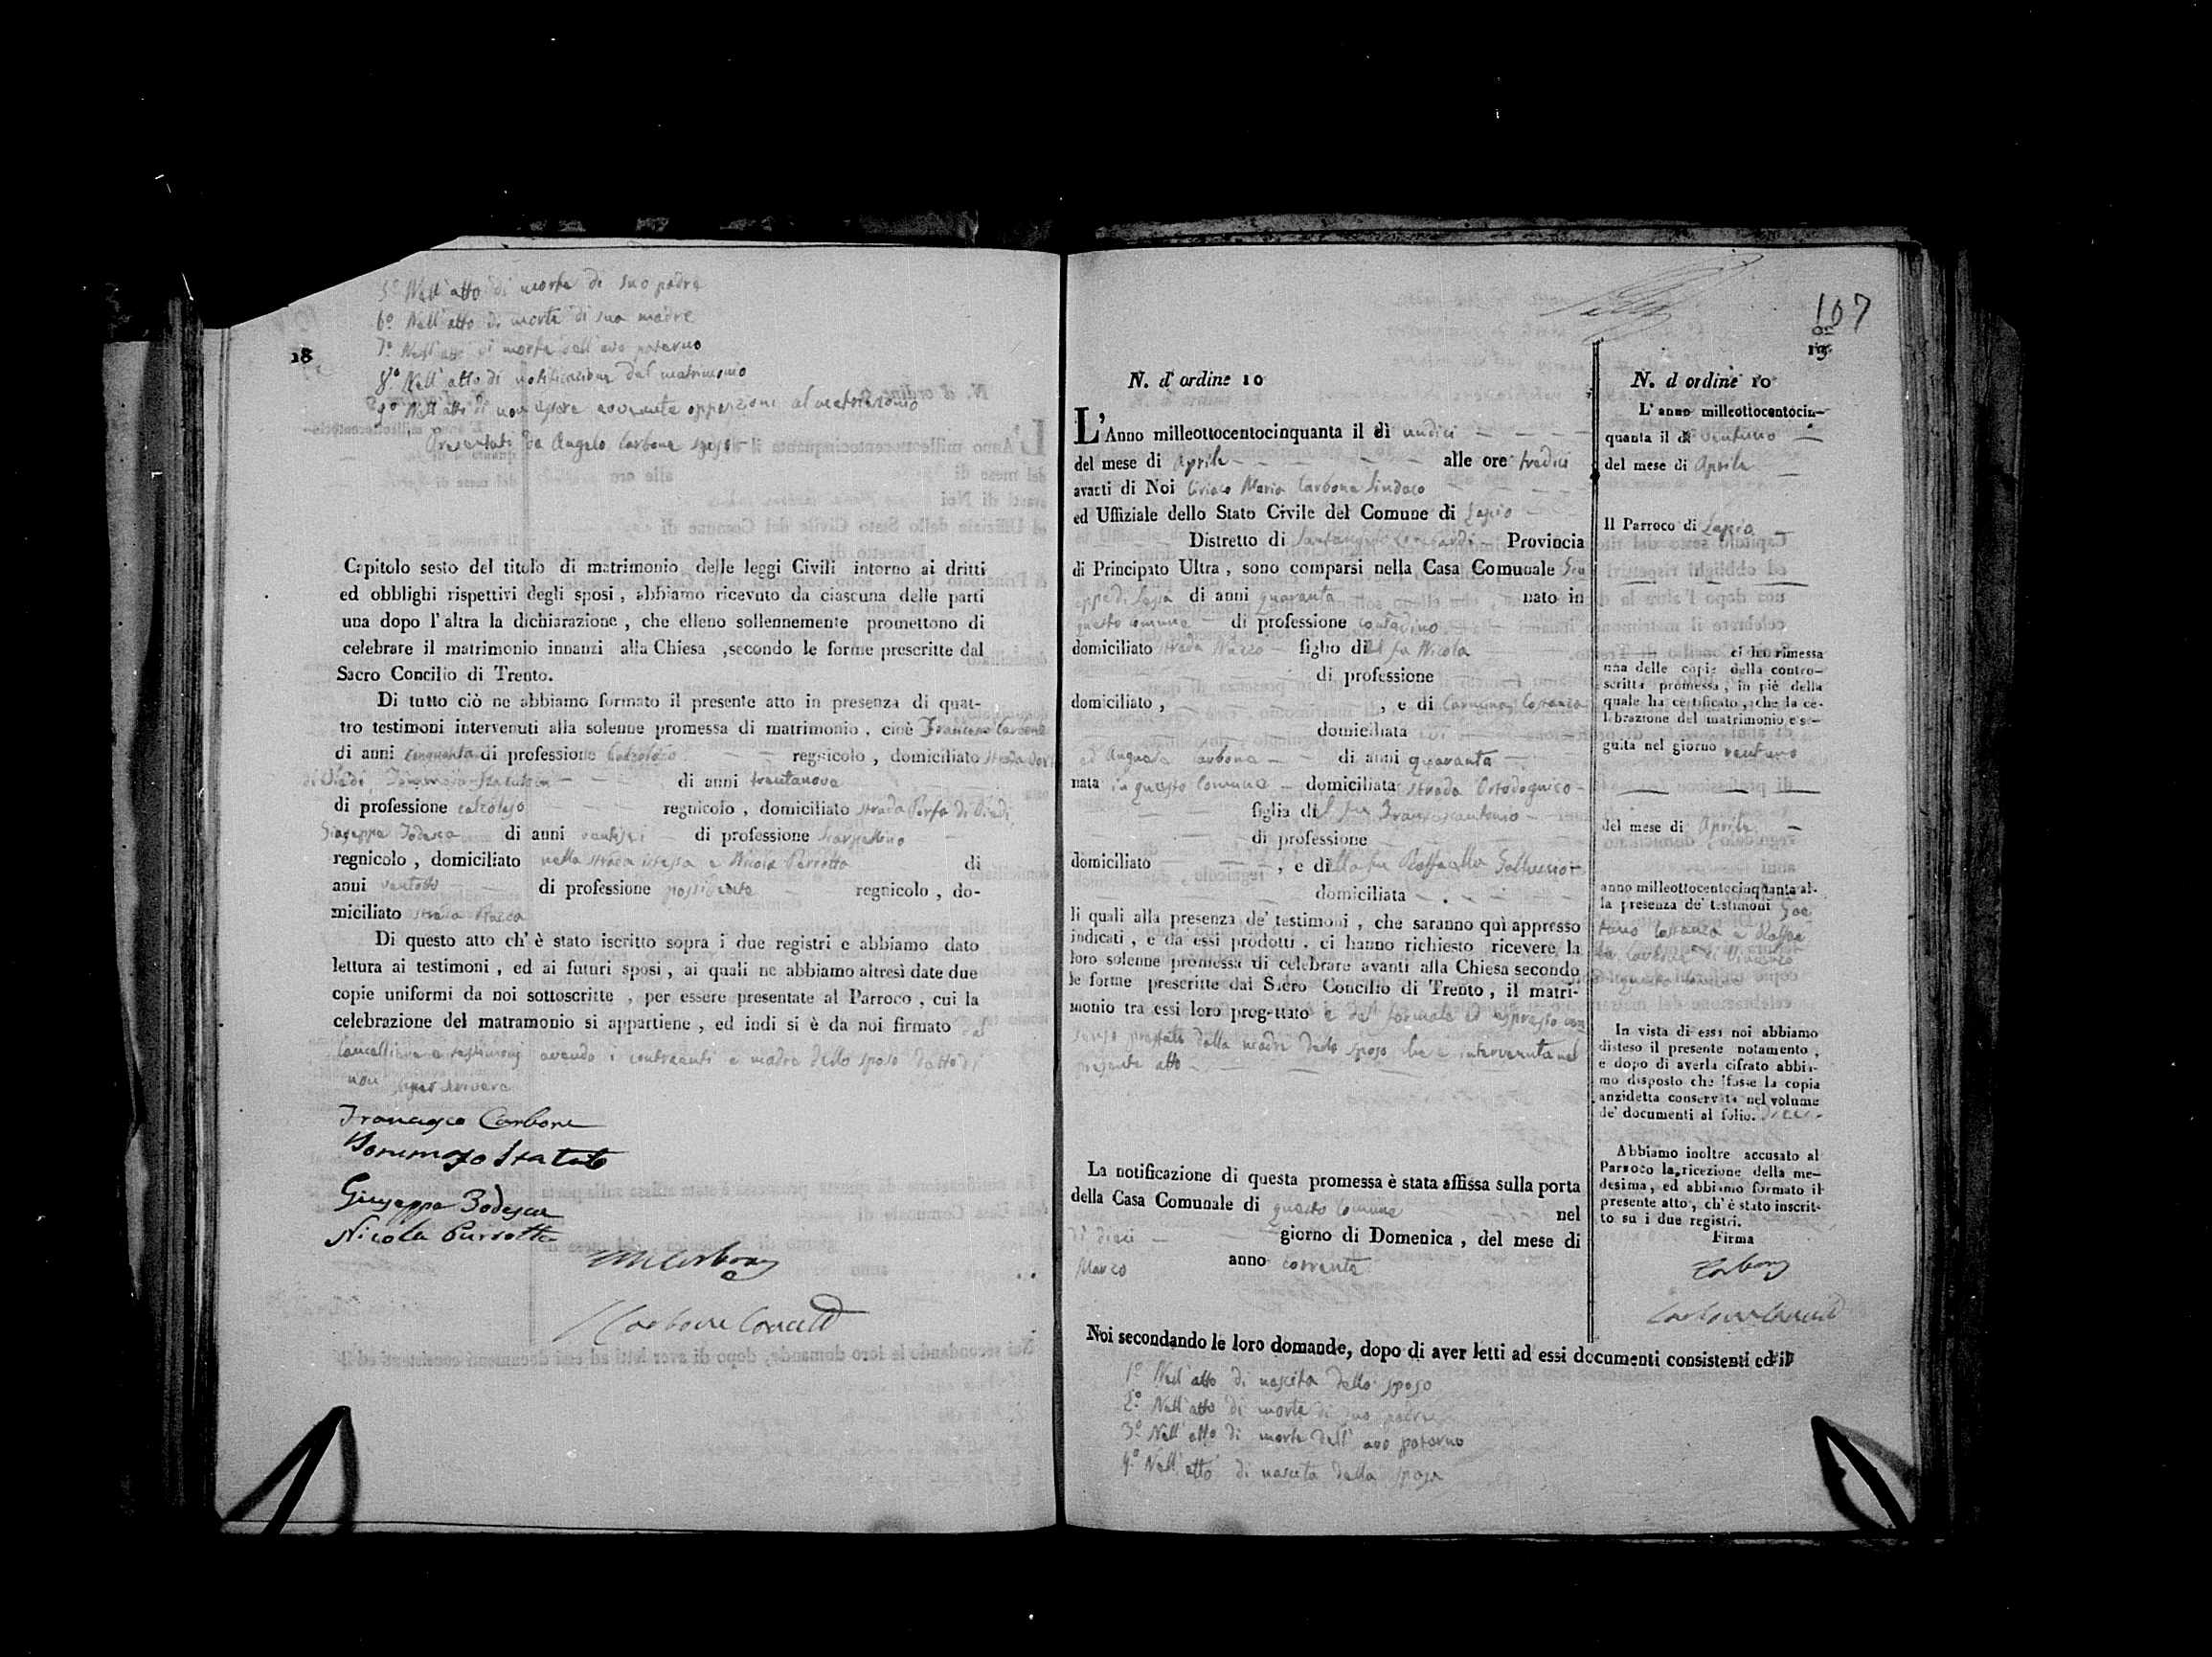 5º Nell'atto di morte di suo padre
6º Nell'atto di morte di sua madre
18
7º Nell'atto di morte dell'avo paterno
8º Nell'atto di notificazione del matrimonio
9º Nell'atto di non essere avvenute opposizioni al matrimonio
Presentati da Angelo Carbone sposo
Capitolo sesto del titolo di matrimonio delle leggi Civili intorno ai dritti
ed obblighi rispettivi degli sposi, abbiamo ricevuto da ciascuna delle parti
una dopo l'altra la dichiarazione, che elleno sollennemente promettono di
celebrare il matrimonio innanzi alla Chiesa ,secondo le forme prescritte dal
Sacro Concilio di Trento.
Di tutto ciò ne abbiamo formato il presente atto in presenza di quat-
tro testimoni intervenuti alla solenne promessa di matrimonio, cioè Francesco Carbone
di anni cinquanta di professione calzolajo regnicolo, domiciliato strada
di anni trentanove
di professione calzolajo regnicolo, domiciliato strada Porta di
Giuseppe Todesca di anni ventisei di professione scarpellino
regnicolo, domiciliato nella strada istessa e Nicola Perrotta di
anni ventotto di professione possidente regnicolo, do-
miciliato strada
Di questo atto ch'è stato iscritto sopra i due registri e abbiamo dato
lettura ai testimoni, ed ai futuri sposi, ai quali ne abbiamo altresì date due
copie uniformi da noi sottoscritte, per essere presentate al Parroco, cui la
celebrazione del matramonio si appartiene, ed indi si è da noi firmato dal
Cancelliere e testimonj avendo i contraenti e madre dello sposo detto di
non saper scrivere
Francesco Carbone
Tommaso Statuto
Giuseppe Todesca
Nicola Perrotta
Carbone
Carbone Cancell
107
19
N. d'ordine 10
L'Anno milleottocentocinquanta il dì undici
del mese di Aprile alle ore tredici
avanti di Noi Ciriaco Maria Carbone Sindaco
ed Uffiziale dello Stato Civile del Comune di Lapio
Distretto di Santangelo Lombardi Provincia
di Principato Ultra, sono comparsi nella Casa Comunale Giu
seppe di di anni quaranta nato in
questo Comune di professione contadino
domiciliato strada figlio del fu Nicola
di professione
domiciliato, , e di Carmina Costanza
domiciliata
ed Angiola Carbone di anni quaranta
nata in questo Comune domiciliata strada
figlia del fu Francescantonio
di professione
domiciliato , e di della fu Raffaella
domiciliata
li quali alla presenza de' testimoni, che saranno quì appresso
indicati, e da essi prodotti, ci hanno richiesto ricevere la
loro solenne promessa di celebrare avanti alla Chiesa secondo
le forme prescritte dal Sacro Concilio di Trento, il matri-
monio tra essi loro progettato e del formale ed espresso con
senso prestato dalla madre dello sposo che è intervenuta nel
presente atto
La notificazione di questa promessa è stata affissa sulla porta
della Casa Comunale di questo Comune nel
dì dieci giorno di Domenica, del mese di
Marzo anno corrente
Noi secondando le loro domande, dopo di aver letti ad essi documenti consistenti ed il
1º Nell'atto di nascita dello sposo
2º Nell'atto di morte di suo padre
3º Nell'atto di morte dell'avo paterno
4º Nell'atto di nascita della sposa
N. d ordine 10
L'anno milleottocentocin-
quanta il dì ventuno
del mese di Aprile
Il Parroco di Lapio
ci ha rimessa
una delle copie della contro-
scritta promessa, in piè della
quale ha certificato, che la ce-
lebrazione del matrimonio è se-
guita nel giorno ventuno
del mese di Aprile
anno milleottocentocinquanta al-
la presenza de' testimoni Gae
tano Costanza e Raffae
le Carbone di Vincenzo
di questo Comune
In vista di essa noi abbiamo
disteso il presente notamento,
e dopo di averla cifrato abbia-
mo disposto che fosse la copia
anzidetta conservata nel volume
de' documenti al folio. dieci
Abbiamo inoltre accusato al
Parroco la ricezione della me-
desima, ed abbiamo formato il
presente atto, ch'è stato inscrit-
to su i due registri.
Firma
Carbone
Carbone Cancell